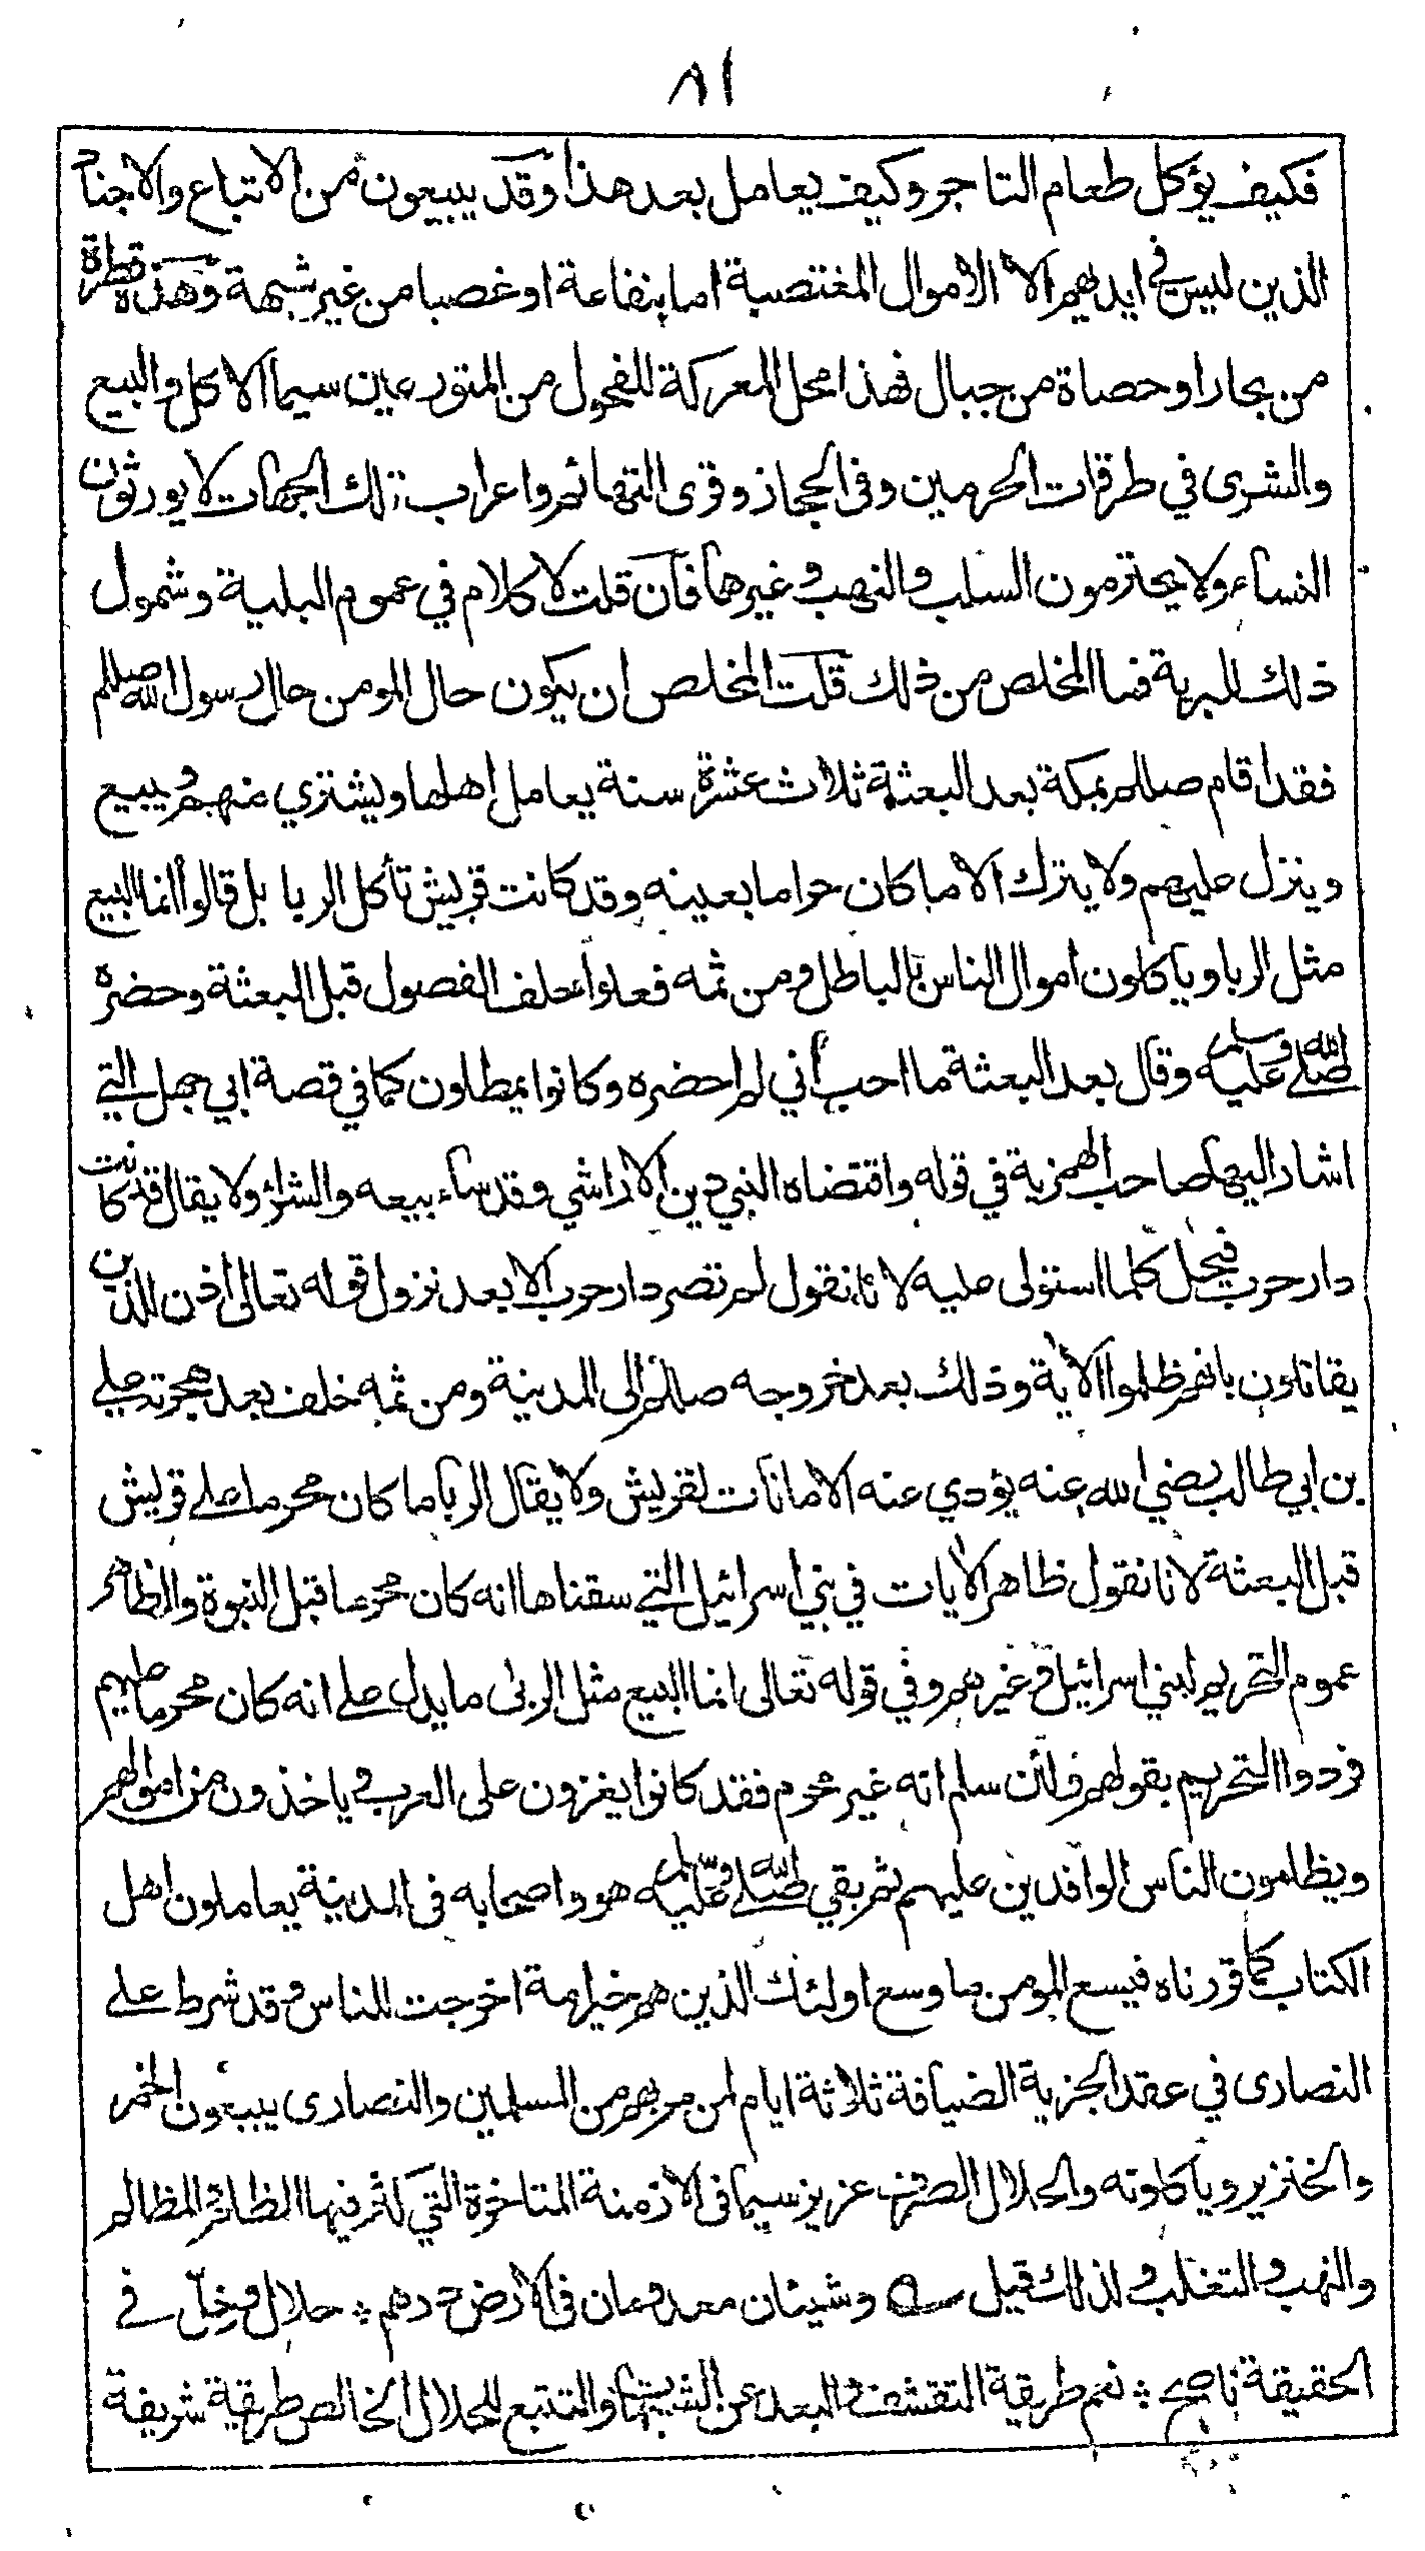 ٨١
فكيف يؤكل طعام التاجر وكيف يعامل بعد هذا وقد يبيعون من الاتباع والاجناد
الذين ليس في ايديهم الا الاموال المغتصبة اما بنفاعة او غصبا من غير شبهة وهذه قطرة
من بحار او حصاة من جبال فهذا محل المعركة للفحول من المتورعين سيما الاكل والبيع
والشرى في طرقات الحرمين وفي الحجاز وقرى التهائم واعراب تلك الجهات لا يورثون
النساء ولا يحترمون السلب والنهب وغيرها فان قلت لا كلام في عموم البلية وشمول
ذلك للبرية فما المخلص من ذلك قلت المخلص ان يكون حال المومن حال رسول الله صللم
فقد اقام صللم بمكة بعد البعثة ثلاث عشرة سنة يعامل اهلها ويشتري منهم ويبيع
وينزل عليهم ولا يترك الا ما كان حراما بعينه وقد كانت قريش تأكل الربا بل قالوا انما البيع
مثل الربا وياكلون اموال الناس بالباطل ومن ثمه فعلوا حلف الفصول قبل البعثة وحضره
صلى الله عليه وسلم وقال بعد البعثة ما احب أني لم احضره وكانوا يمطلون كما في قصة ابي جهل التي
اشار اليها صاحب الهمزية في قوله واقتضاه النبي دين الاراشي وقد ساء بيعه والشراء ولا يقال قد كانت
دار حرب فيحل كلما استولى عليه لانا نقول لم تصر دار حرب الا بعد نزول قوله تعالى اذن للذين
يقاتلون بانهم ظلموا الآية وذلك بعد خروجه صللم الى المدينة ومن ثمه خلف بعد هجرته علي
بن ابي طالب رضي الله عنه يؤدي عنه الامانات لقريش ولا يقال الربا ما كان محرما على قريش
قبل البعثة لانا نقول ظاهر الآيات في بني اسرائيل التي سقناها انه كان محرما قبل النبوة والظاهر
عموم التحريم لبني اسرائيل وغيرهم وفي قوله تعالى انما البيع مثل الربى ما يدل على انه كان محرما عليهم
فردوا التحريم بقولهم فلئن سلم انه غير محرم فقد كانوا يغزون على العرب وياخذون من اموالهم
ويظلمون الناس الوافدين عليهم ثم بقي صلى الله عليه وسلم هو واصحابه في المدينة يعاملون اهل
الكتاب كما قررناه فيسع المومن ما وسع اولئك الذين هم خير امة اخرجت للناس وقد شرط على
النصارى في عقد الجزية الضيافة ثلاثة ايام لمن مر بهم من المسلمين والنصارى يبيعون الخمر
والخنزير وياكلونه والحلال الصرف عزيز سيما في الازمنة المتاخرة التي كثر فيها الظالم والمظالم
والنهب والتغلب ولذلك قيل وشيئان معدومان في الارض درهم ؞ حلال وخل في
الحقيقة ناصح ؞ نعم طريقة التقشف والبعد عن الشبهات والتتبع للحلال الخالص طريقة شريفة